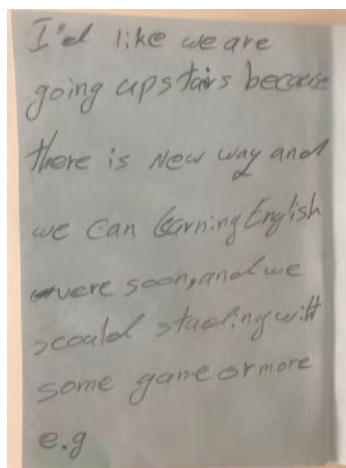 I'd like we are
going upstairs because
there is New way and
we can learning English
vere soon, and we
scould studing with
some game or more
e.g